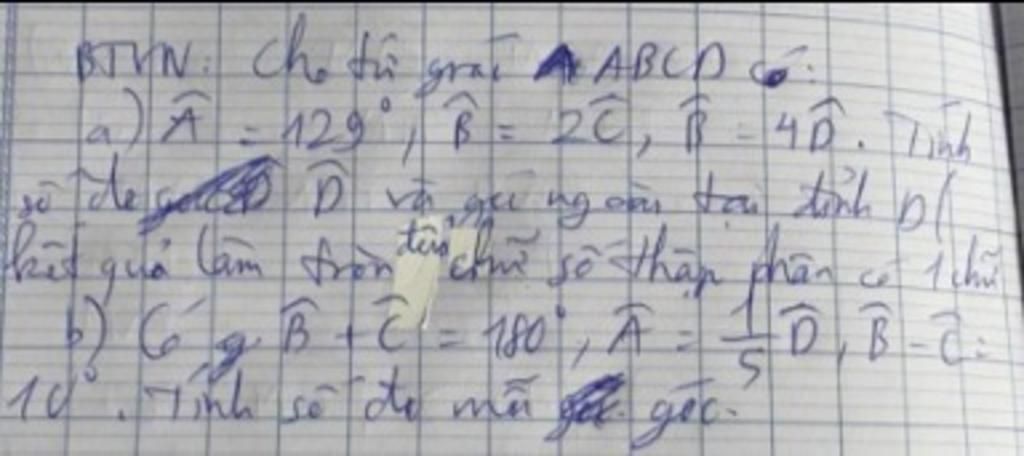 BTVN: Cho tứ giác ABCD có:
a) Â = 129°, B̂ = 2Ĉ, B̂ = 4D̂. Tính
số đo D̂ và góc ngoài tại đỉnh D (
kết quả làm tròn đến chữ số thập phân có 1 chữ
b) Có B̂ + Ĉ = 180°, Â = 1/5 D̂, B̂ - Ĉ =
10°. Tính số đo mỗi góc.